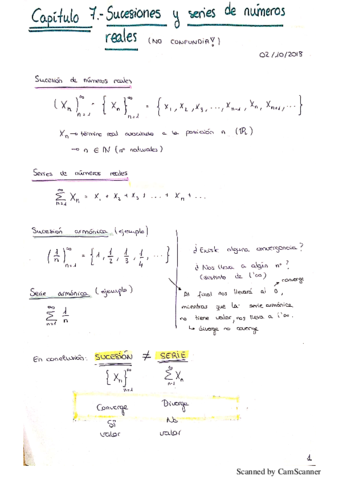 Capítulo 7.- Sucesiones y series de números
reales (NO CONFUNDIR!)
02/10/2018
Sucesión de números reales
(Xn)∞n=1 = {Xn}∞n=1 = {x1, x2, x3, ..., xn-1, xn, xn+1, ...}
Xn → término real asociado a la posición n (ℝ)
→ n ∈ ℕ (nº naturales)
Series de números reales
∑∞n=1 Xn = x1 + x2 + x3 + ... + xn + ...
Sucesión armónica (ejemplo)
(1/n)∞n=1 = {1, 1/2, 1/3, 1/4, ...}
¿Existe alguna convergencia?
¿Nos lleva a algún nº?
(distinto de l'∞)
converge
Al final nos llevará al 0,
mientras que la serie armónica
no tiene valor, nos lleva a l'∞.
↳ diverge no converge
Serie armónica (ejemplo)
∑∞n=1 1/n
En conclusión: SUCESIÓN ≠ SERIE
{Xn}∞n=1 ∑∞n=1 Xn
Converge Diverge
Sí No
valor valor
1
Scanned by CamScanner